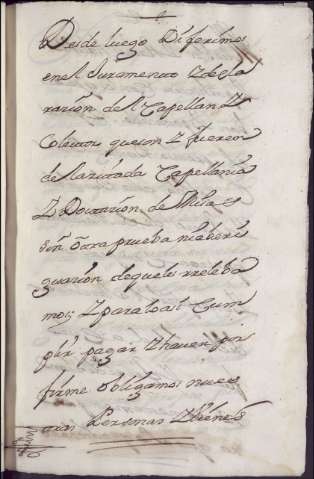 Desde luego Diferimos
en el Juramento y decla
razion del Capellan y
Colector que son y fueren
de la zitada Capellania
y Dotazion de Misas
sin otra prueba ni aberi
guazion de que les releba
mos y para lo asi Cum
plir pagar y haver por
firme obligamos nues
tras Personas y Vienes